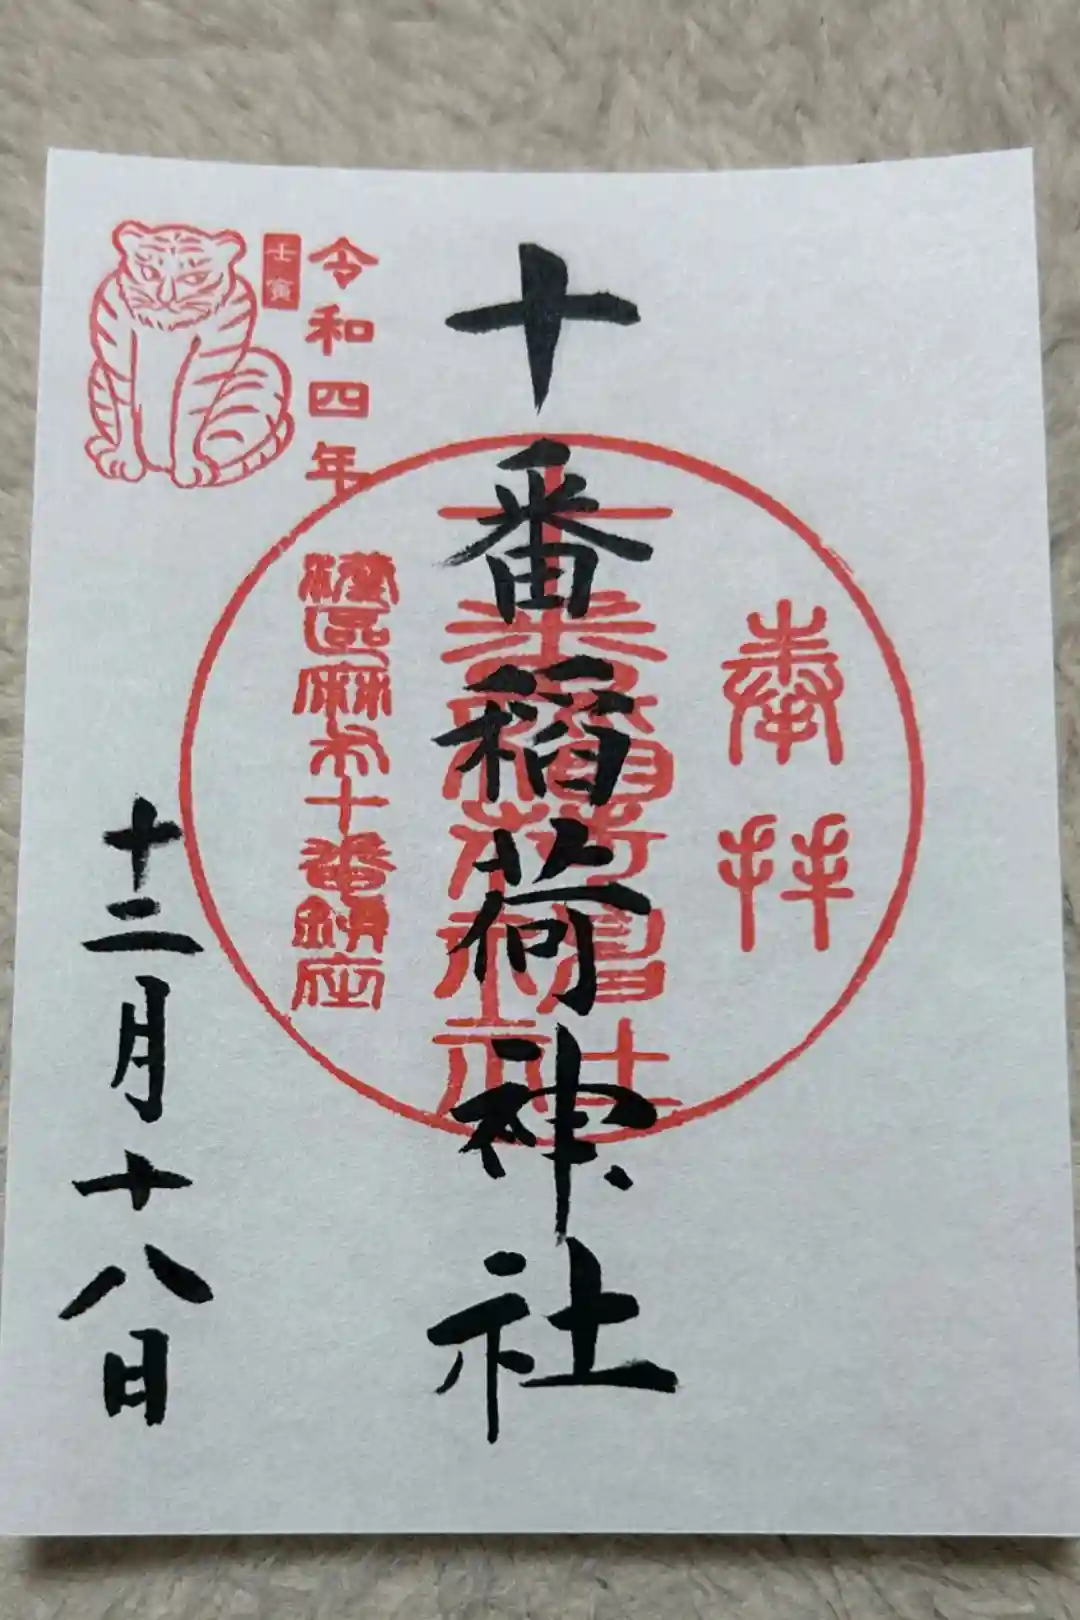 奉拝
十番稲荷神社
十番稲荷神社
港區麻布十番鎮座
令和四年
壬寅
十二月十八日